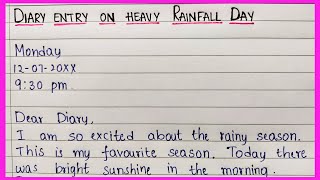 DIARY ENTRY ON HEAVY RAINFALL DAY
Monday
12-07-20XX
9:30 pm.
Dear Diary,
I am so excited about the rainy season.
This is my favourite season. Today there
was bright sunshine in the morning.